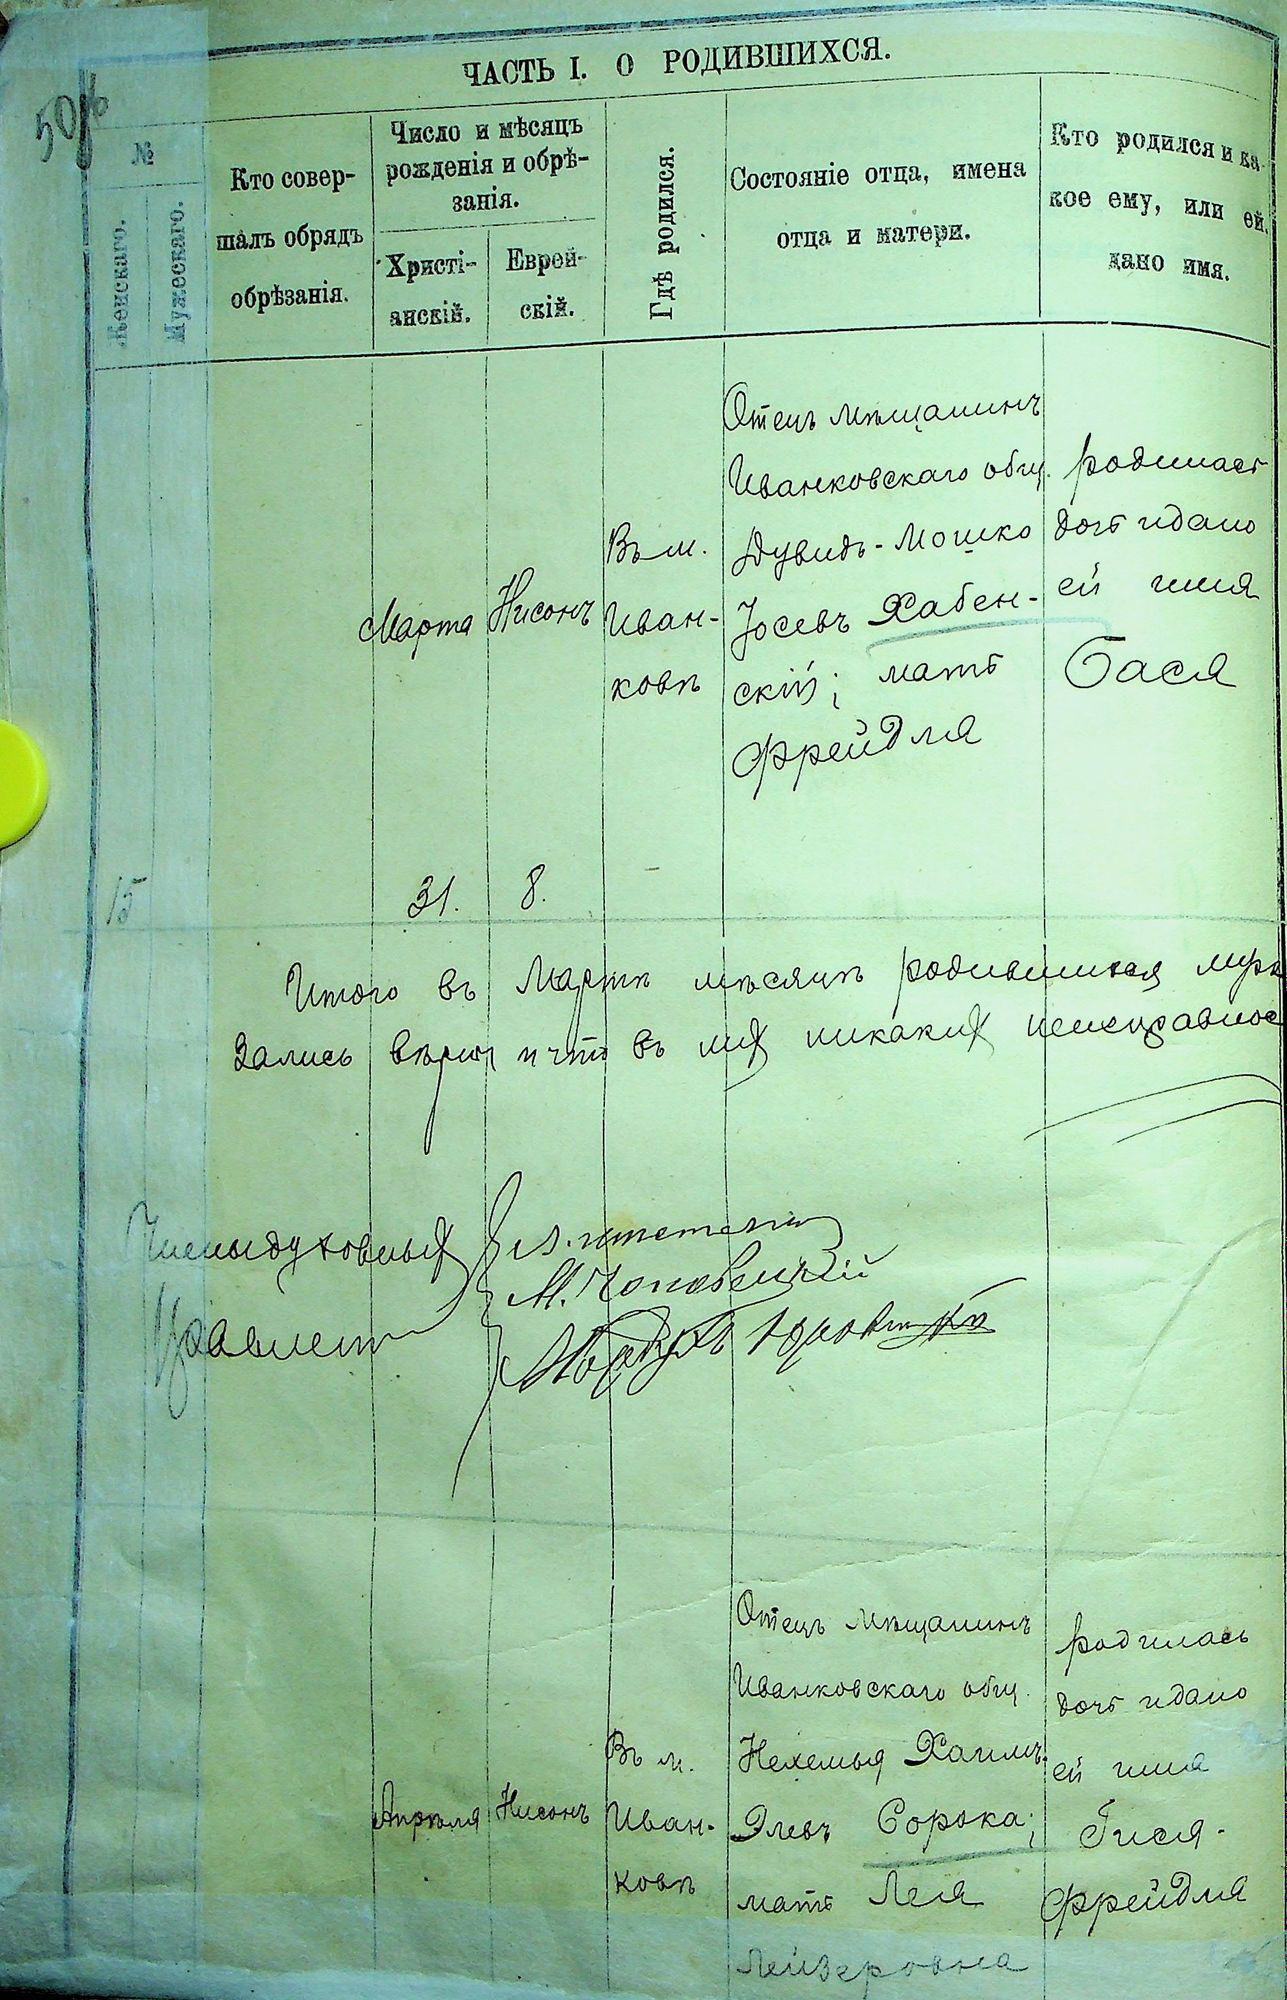 50
ЧАСТЬ I. О РОДИВШИХСЯ.
№
Женскаго.
Мужескаго.
Кто совер-
шалъ обрядъ
обрѣзанія.
Число и мѣсяцъ
рожденія и обрѣ-
занія.
Христі-
анскій.
Еврей-
скій.
Гдѣ родился.
Состояніе отца, имена
отца и матери.
Кто родился и ка-
кое ему, или ей,
дано имя.
15
Марта
31.
Нисонъ
8.
Въ м.
Иван-
ковѣ
Отецъ мѣщанинъ
Иванковскаго общ.
Дувидъ-Мошко
Іосевъ Хабен-
скій; мать
Фрейдля
родилась
дочь и дано
ей имя
Бася
Итого въ Мартѣ мѣсяцѣ родившихся
Запись вѣрна и что въ ней никакихъ неисправнос
Члены духовныхъ
М. Чоповецкій
Апрѣля
Нисонъ
Въ м.
Иван-
ковѣ
Отецъ мѣщанинъ
Иванковскаго общ.
Нехемья Хаимъ-
Элевъ Сорока;
мать Лея
Лейзеровна
родилась
дочь и дано
ей имя
Гися-
Фрейдля